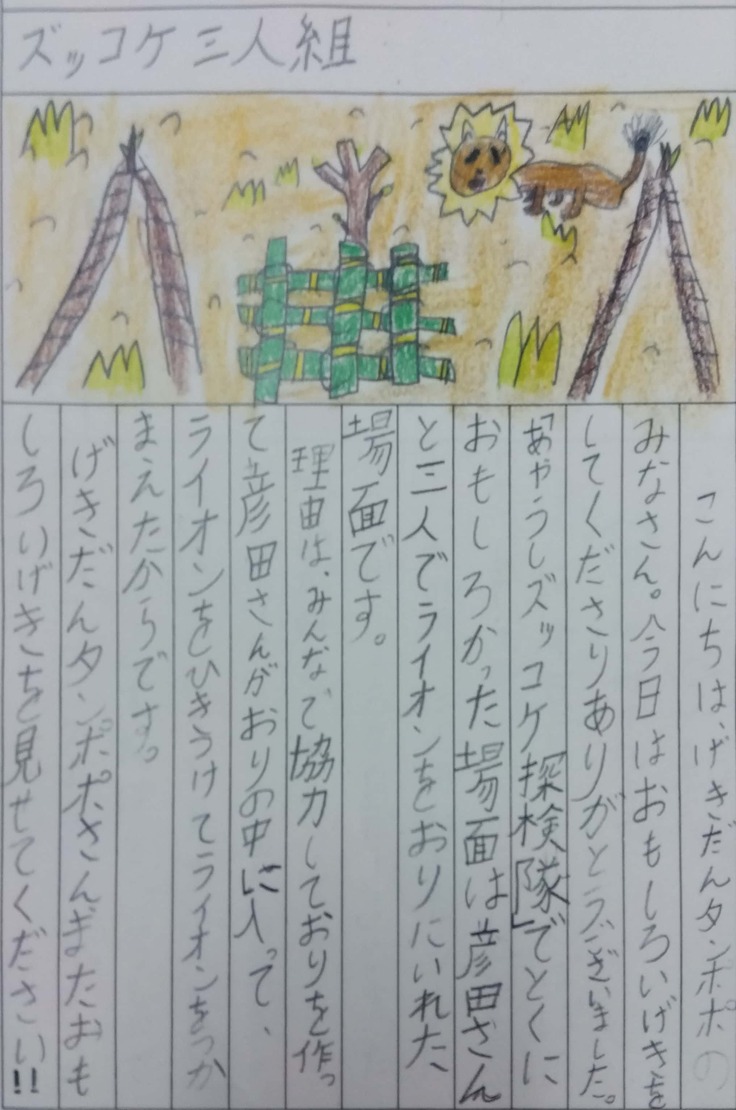 ズッコケ三人組
こんにちは、げきだんタンポポの
みなさん。今日はおもしろいげきを
してくださりありがとうございました。
「あやうしズッコケ探検隊」でとくに
おもしろかった場面は彦田さん
と三人でライオンをおりにいれた、
場面です。
理由は、みんなで協力しておりを作っ
て彦田さんがおりの中に入って、
ライオンをひきうけてライオンをつか
まえたからです。
げきだんタンポポさんまたおも
しろいげきを見せてください!!